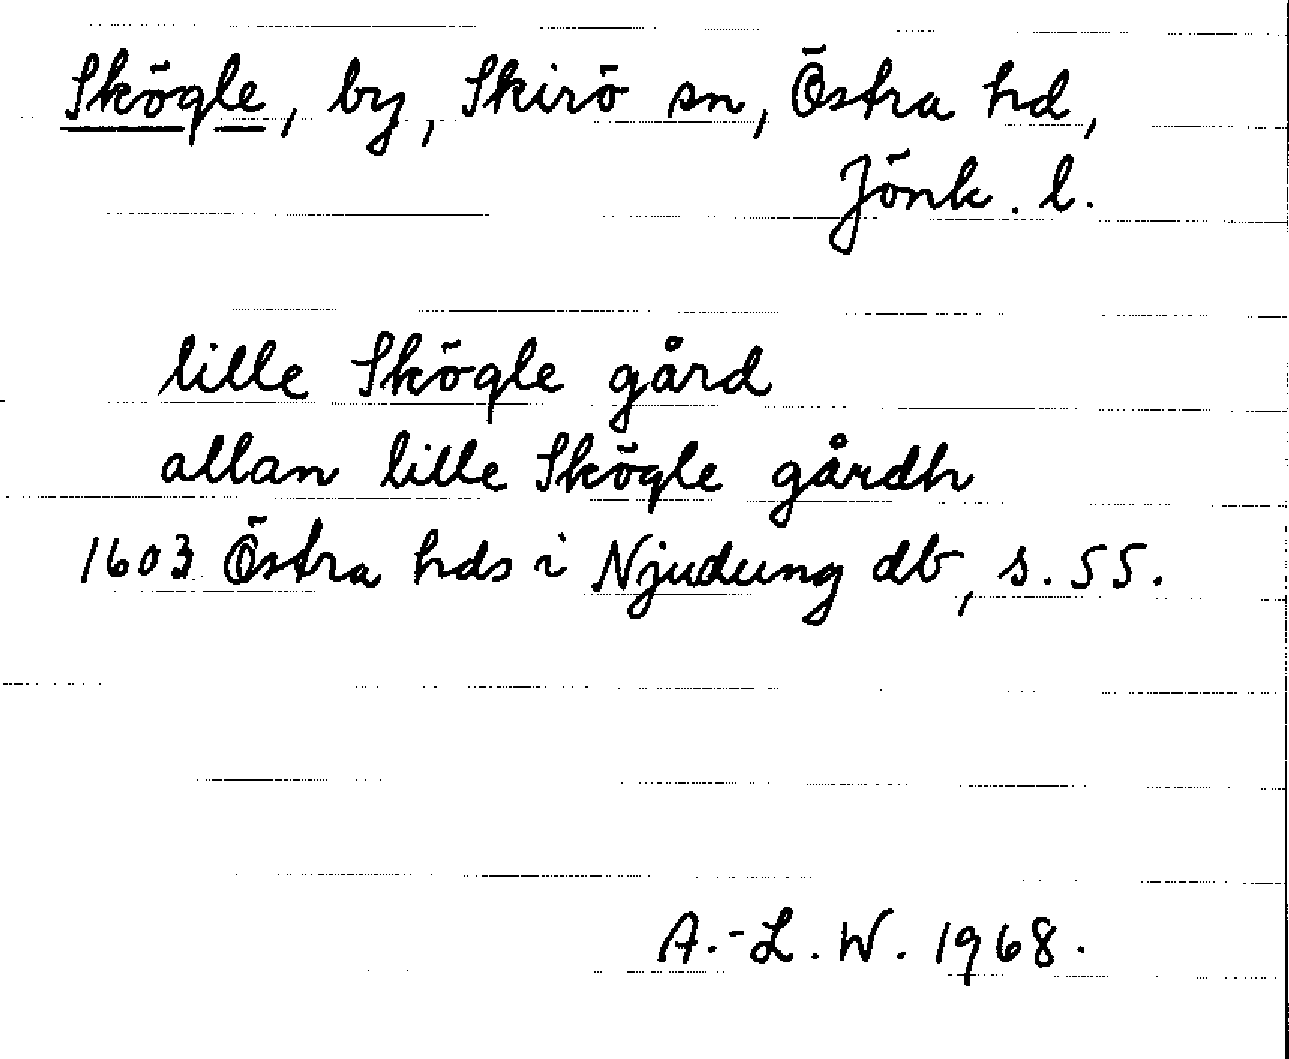 Skögle, by, Skirö sn, Östra hd,
Jönk. l.
lille Skögle gård
allan lille Skögle gårdh
1603 Östra hds i Njudung db, s. 55.
A.-L. W. 1968.